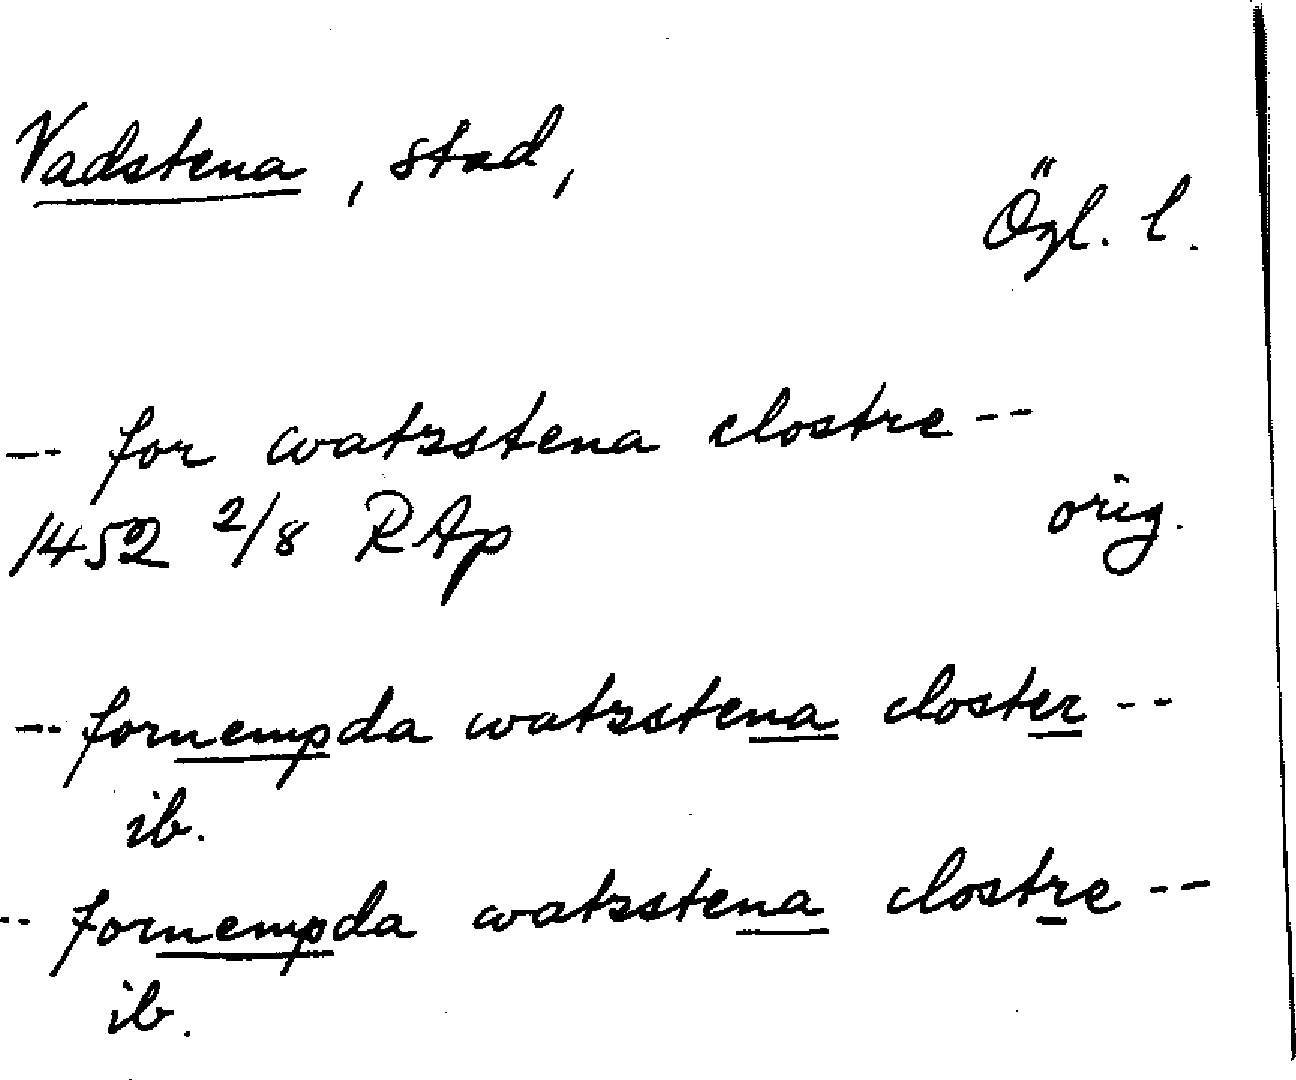 Vadstena, stad,
Ögl. l.
-- for watzstena clostre --
1452 2/8 RAp orig.
-- fornempda watzstena closter --
ib.
-- fornempda watzstena clostre --
ib.